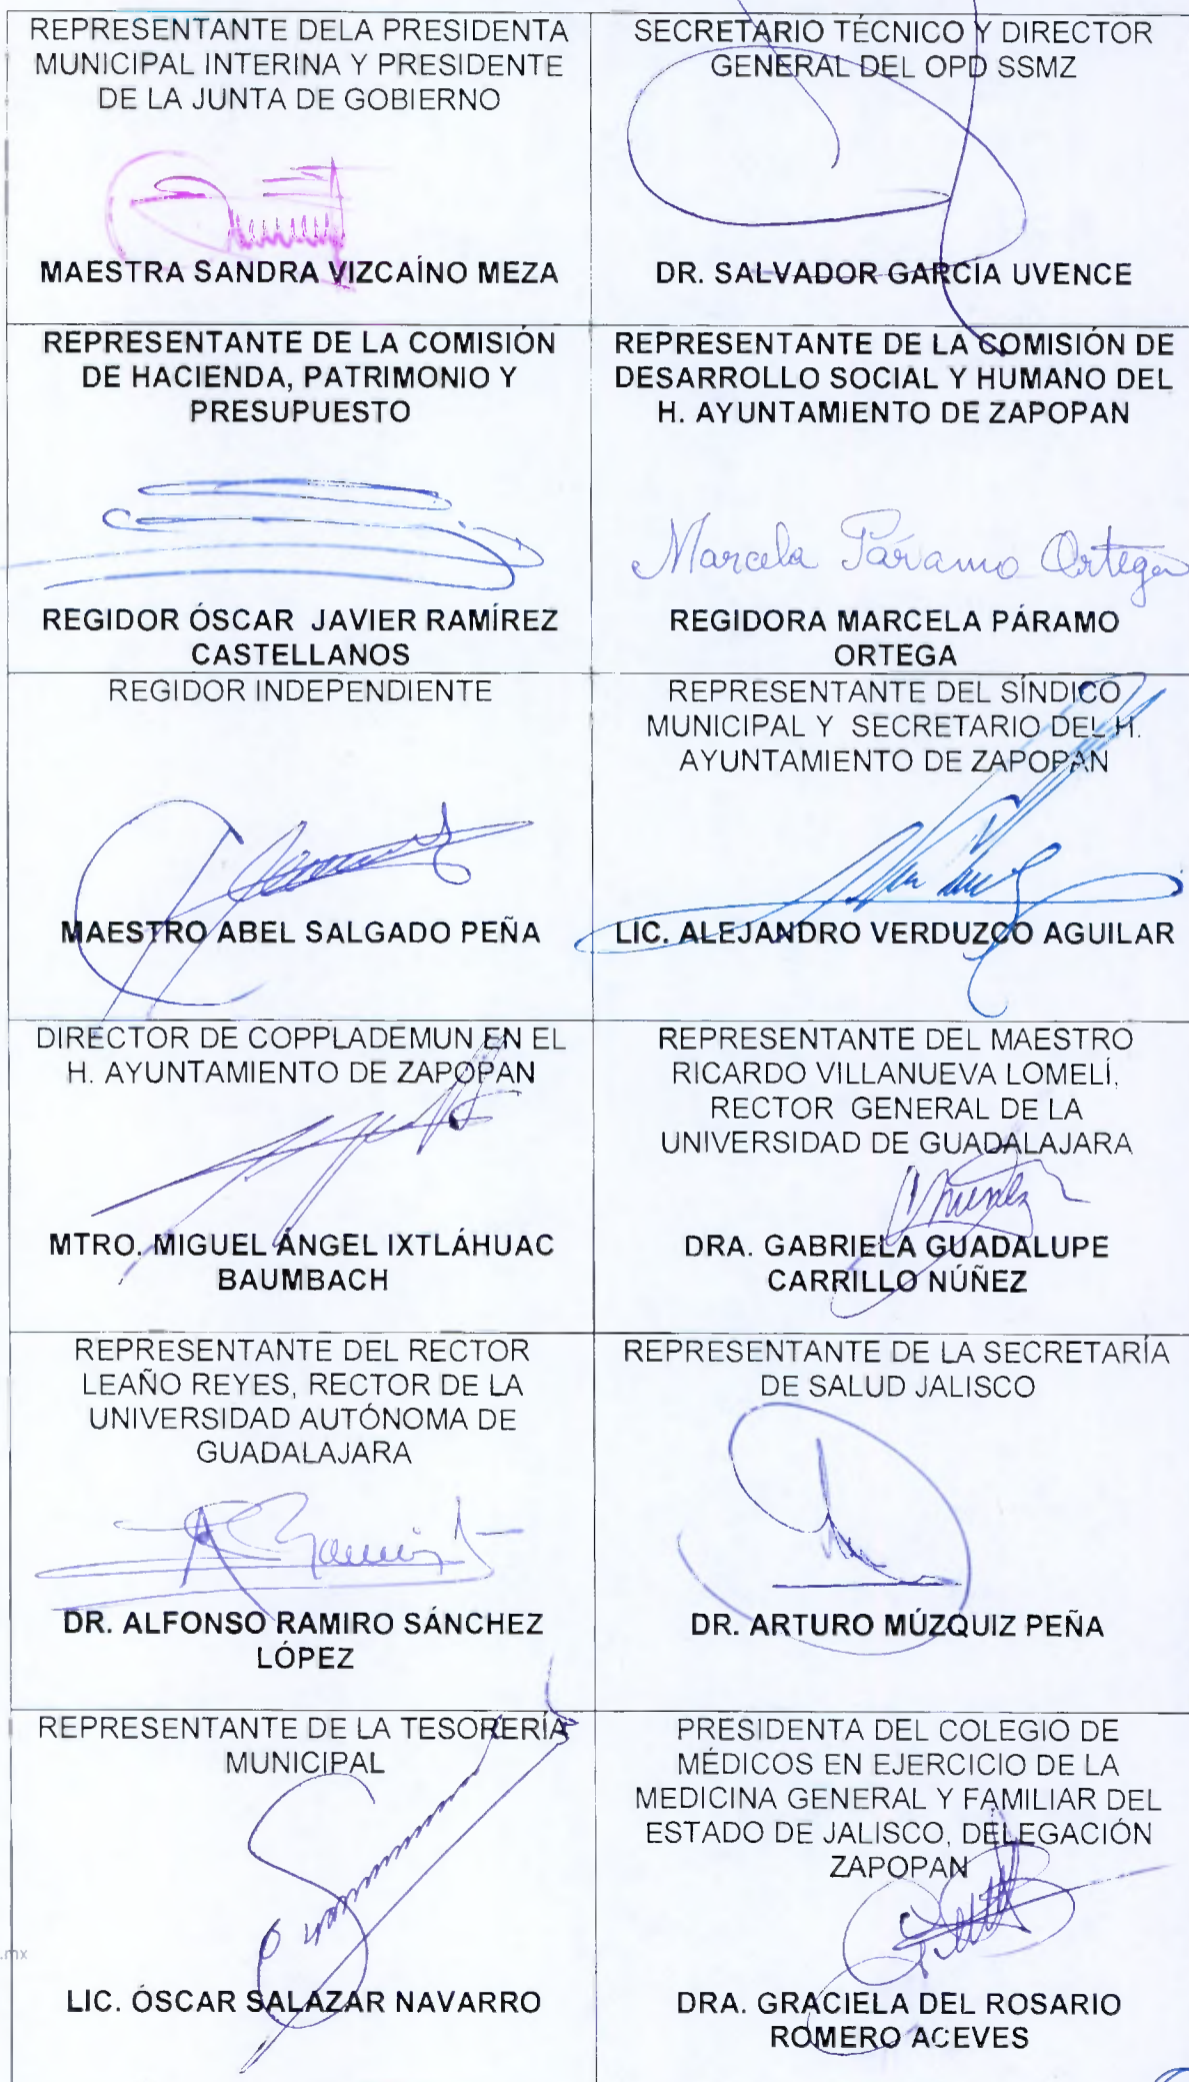 REPRESENTANTE DELA PRESIDENTA
MUNICIPAL INTERINA Y PRESIDENTE
DE LA JUNTA DE GOBIERNO
MAESTRA SANDRA VIZCAÍNO MEZA
SECRETARIO TÉCNICO Y DIRECTOR
GENERAL DEL OPD SSMZ
DR. SALVADOR GARCIA UVENCE
REPRESENTANTE DE LA COMISIÓN
DE HACIENDA, PATRIMONIO Y
PRESUPUESTO
REGIDOR ÓSCAR JAVIER RAMÍREZ
CASTELLANOS
REPRESENTANTE DE LA COMISIÓN DE
DESARROLLO SOCIAL Y HUMANO DEL
H. AYUNTAMIENTO DE ZAPOPAN
Marcela Páramo Ortega
REGIDORA MARCELA PÁRAMO
ORTEGA
REGIDOR INDEPENDIENTE
MAESTRO ABEL SALGADO PEÑA
REPRESENTANTE DEL SÍNDICO
MUNICIPAL Y SECRETARIO DEL H.
AYUNTAMIENTO DE ZAPOPAN
LIC. ALEJANDRO VERDUZCO AGUILAR
DIRECTOR DE COPPLADEMUN EN EL
H. AYUNTAMIENTO DE ZAPOPAN
MTRO. MIGUEL ÁNGEL IXTLÁHUAC
BAUMBACH
REPRESENTANTE DEL MAESTRO
RICARDO VILLANUEVA LOMELÍ,
RECTOR GENERAL DE LA
UNIVERSIDAD DE GUADALAJARA
DRA. GABRIELA GUADALUPE
CARRILLO NÚÑEZ
REPRESENTANTE DEL RECTOR
LEAÑO REYES, RECTOR DE LA
UNIVERSIDAD AUTÓNOMA DE
GUADALAJARA
DR. ALFONSO RAMIRO SÁNCHEZ
LÓPEZ
REPRESENTANTE DE LA SECRETARÍA
DE SALUD JALISCO
DR. ARTURO MÚZQUIZ PEÑA
REPRESENTANTE DE LA TESORERÍA
MUNICIPAL
.mx
LIC. ÓSCAR SALAZAR NAVARRO
PRESIDENTA DEL COLEGIO DE
MÉDICOS EN EJERCICIO DE LA
MEDICINA GENERAL Y FAMILIAR DEL
ESTADO DE JALISCO, DELEGACIÓN
ZAPOPAN
DRA. GRACIELA DEL ROSARIO
ROMERO ACEVES